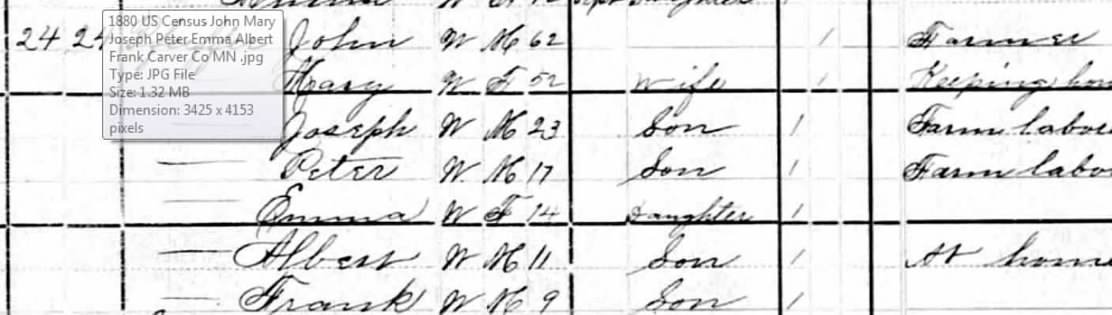 1880 US Census John Mary
Joseph Peter Emma Albert
Frank Carver Co MN .jpg
Type: JPG File
Size: 1.32 MB
Dimension: 3425 x 4153
pixels
24 24 John W M 62 / Farmer
Mary W F 52 Wife / Keeping hou
Joseph W M 23 Son / Farm labor
— Peter W. M 17 Son / Farm labo
— Emma W F 14 Daughter /
— Albert W M 11 Son / At home
— Frank W M 9 Son /